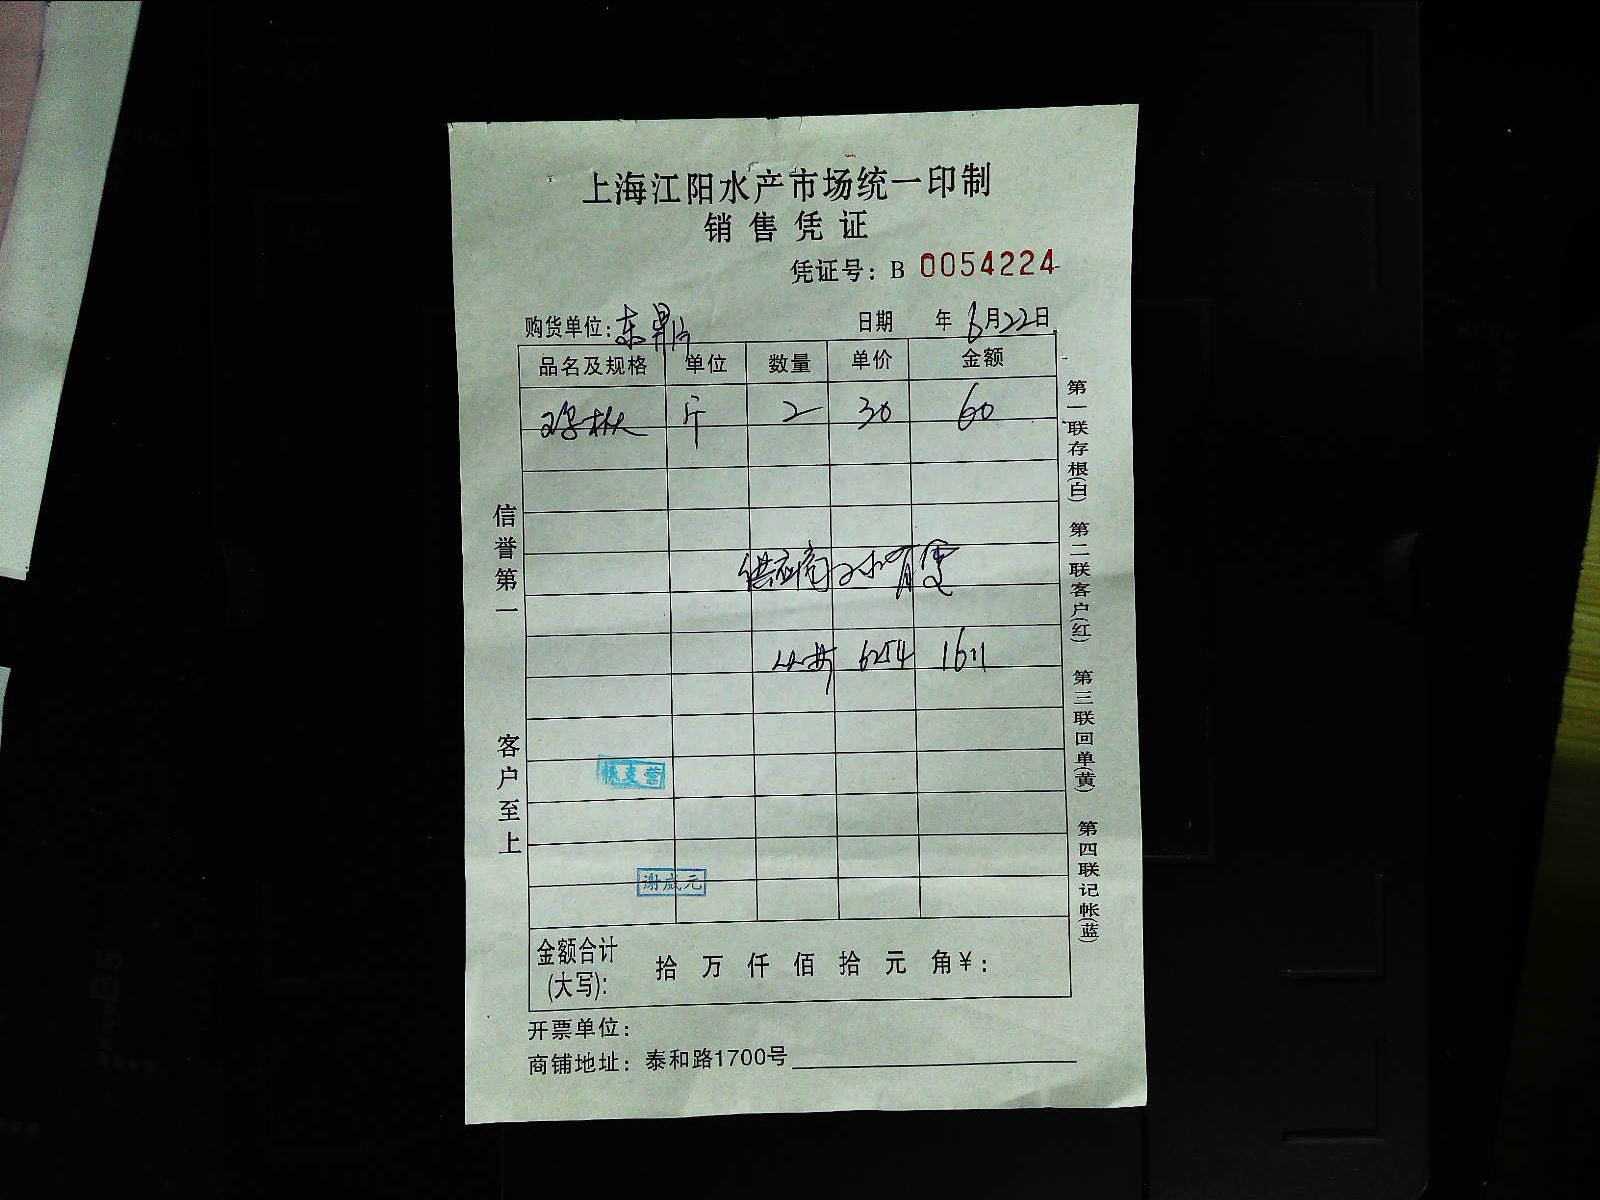 上海江阳水产市场统一印制
销售凭证
凭证号：B 0054224
购货单位：东 日期 年 6月22日
品名及规格 单位 数量 单价 金额
斤 2 30 60
供应商
6254 1611
谢成元
金额合计(大写)： 拾 万 仟 佰 拾 元 角 ¥：
开票单位：
商铺地址：泰和路1700号
信誉第一 客户至上
第一联存根(白) 第二联客户(红) 第三联回单(黄) 第四联记帐(蓝)